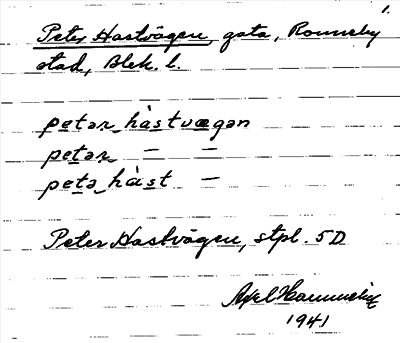 1.
Peter Hastvägen, gata, Ronneby
stad, Blek. l.
petər hàstvægən
petər — —
petə hàst —
Peter Hastvägen, stpl. 5D
Axel
1941